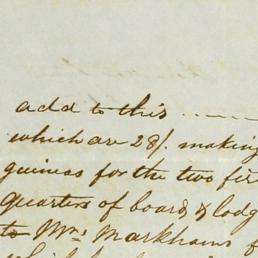 add to this ..——
which are 28/. making
guineas for the two fir
Quarters of board & lodg
to Mrs Markhams f